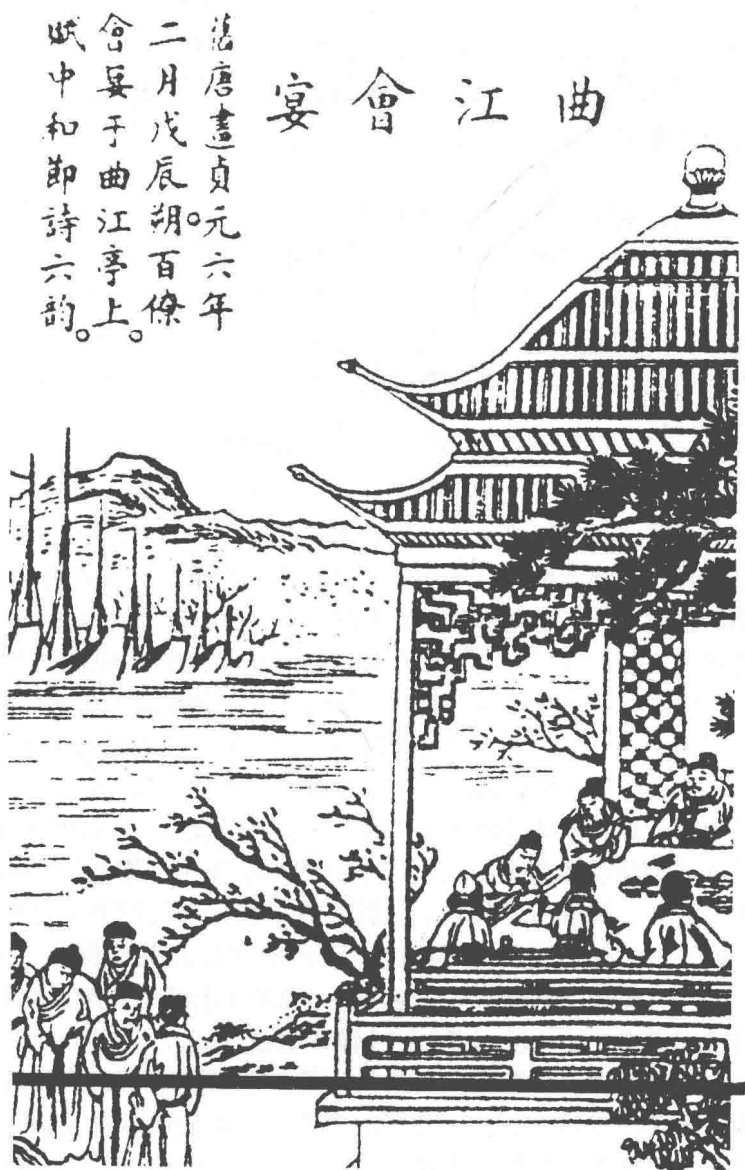 曲江會宴
舊唐書貞元六年
二月戊辰朔。百僚
會宴于曲江亭上。
賦中和節詩六韵。